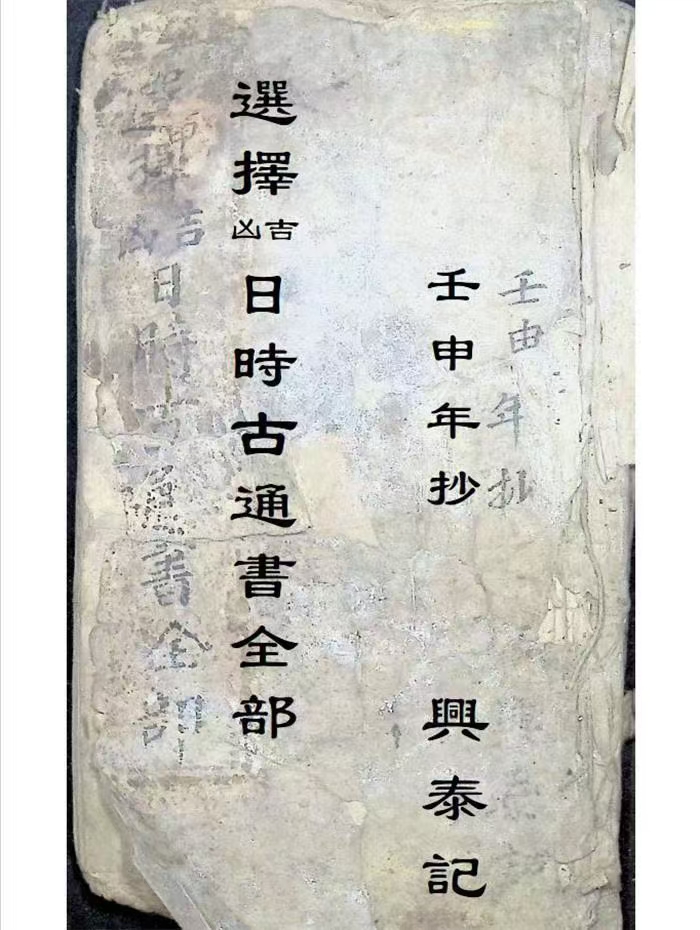 壬申年抄
壬申年抄
興泰記
選擇吉凶日時古通書全部
擇吉凶日時古通書全部